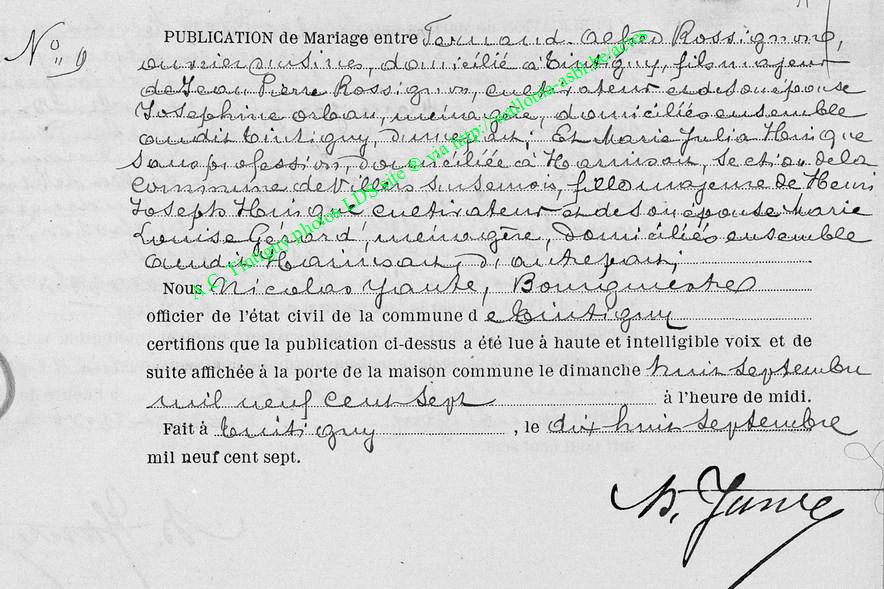 N° 9
PUBLICATION de Mariage entre Fernand Rossignon,
ouvrier d'usines, domicilié à Tintigny, fils majeur
de Jean Pierre Rossignon, cultivateur et de son épouse
Joséphine Orban, ménagère, domiciliés ensemble
audit Tintigny, d'une part; Et Marie Julia Henique
sans profession, domiciliée à Harinsart, section de la
commune de Villers sur Semois, fille majeure de Henri
Joseph Henique cultivateur et de son épouse Marie
Louise Gérard, ménagère, domiciliés ensemble
audit Harinsart, d'autre part;
Nous Nicolas Bourgmestre
officier de l'état civil de la commune de Tintigny
certifions que la publication ci-dessus a été lue à haute et intelligible voix et de
suite affichée à la porte de la maison commune le dimanche huit septembre
mil neuf cent sept à l'heure de midi.
Fait à Tintigny, le dix huit septembre
mil neuf cent sept.
A.C. Tintigny photos LDS site © via http://wallonia-asbl.be/actes